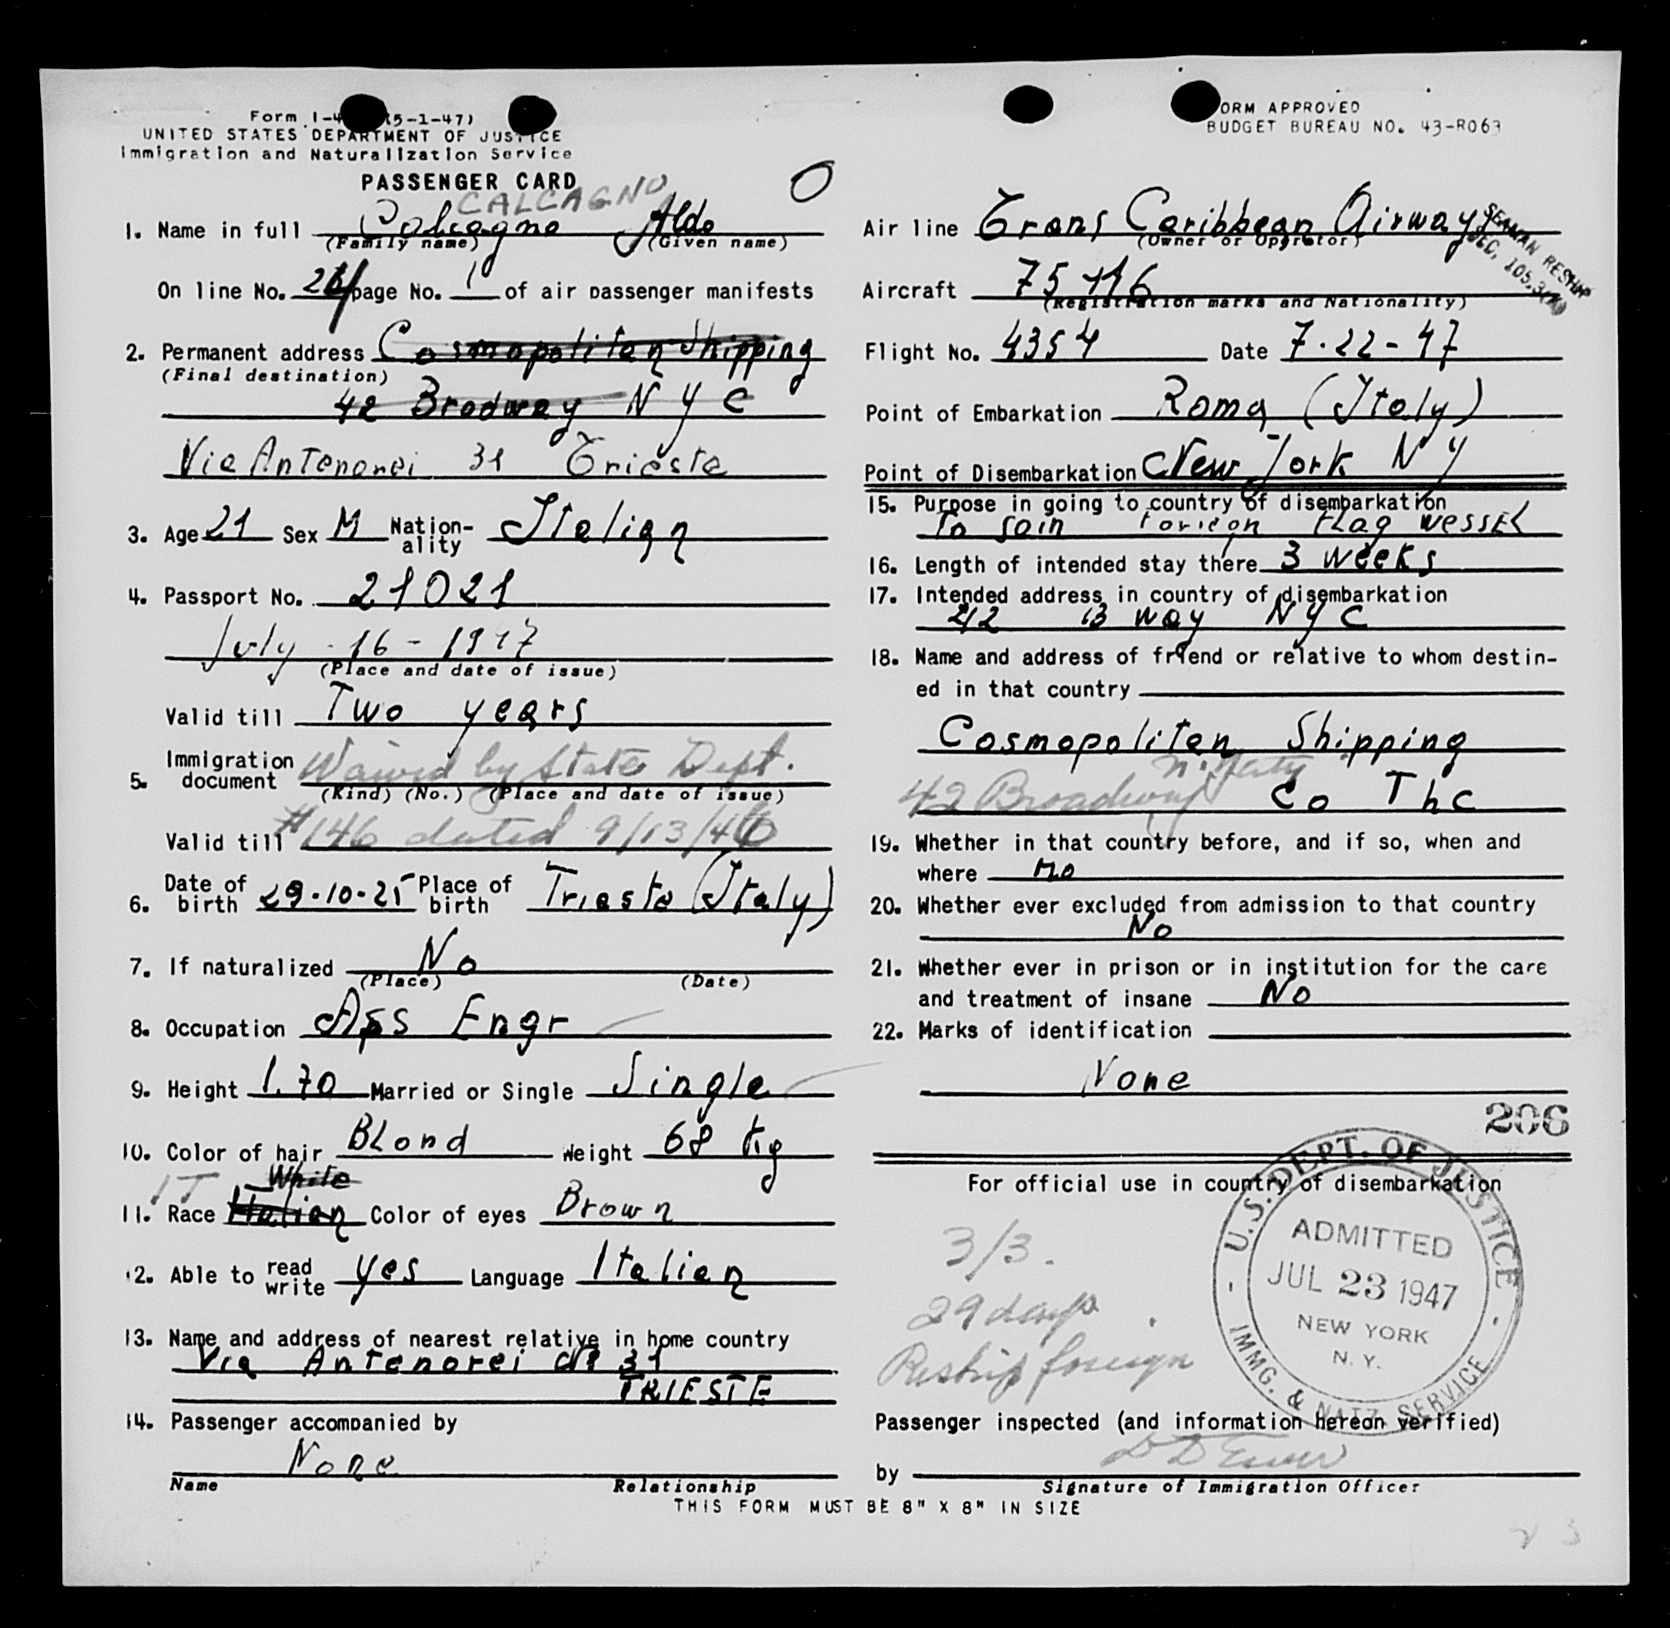 Form I-4 (5-1-47)
UNITED STATES DEPARTMENT OF JUSTICE
Immigration and Naturalization Service
PASSENGER CARD
CALCAGNO
1. Name in full Calcagno Aldo
(Family name) (Given name)
On line No. page No. 1 of air passenger manifests
2. Permanent address Cosmopolitan Shipping
(Final destination)
42 Brodway N Y C
Via Antenorei 31 Trieste
3. Age 21 Sex M Nationality Italian
4. Passport No. 21021
July - 16 - 1947
(Place and date of issue)
Valid till Two years
5. Immigration document Waived by State Dept.
(Kind) (No.) (Place and date of issue)
Valid till #146 dated 9/13/46
6. Date of birth 29-10-25 Place of birth Trieste (Italy)
7. If naturalized No
(Place) (Date)
8. Occupation Ass Engr
9. Height 1.70 Married or Single Single
10. Color of hair BLond Weight 68 kg
IT White
11. Race Italian Color of eyes Brown
12. Able to read write yes Language Italian
13. Name and address of nearest relative in home country
Via Antenorei 31
TRIESTE
14. Passenger accompanied by
None
Name Relationship
FORM APPROVED
BUDGET BUREAU NO. 43-R063
0
Air line Trans Caribbean Airways
(Owner or Operator)
SEAMAN RESHIP
SEC. 105.3
Aircraft
(Registration marks and Nationality)
Flight No. 4354 Date 7-22-47
Point of Embarkation Roma (Italy)
Point of Disembarkation New York N Y
15. Purpose in going to country of disembarkation
To Join Foreign FLag vessEL
16. Length of intended stay there 3 weeks
17. Intended address in country of disembarkation
B way N Y C
18. Name and address of friend or relative to whom destined in that country
Cosmopolitan Shipping
42 Broadway Co Inc
19. Whether in that country before, and if so, when and
where no
20. Whether ever excluded from admission to that country
No
21. Whether ever in prison or in institution for the care
and treatment of insane No
22. Marks of identification
None
206
For official use in country of disembarkation
3/3.
29 days
Reship foreign
U.S. DEPT. OF JUSTICE
ADMITTED
JUL 23 1947
NEW YORK
N. Y.
IMMG. & NATZ. SERVICE
Passenger inspected (and information hereon verified)
by
Signature of Immigration Officer
THIS FORM MUST BE 8" X 8" IN SIZE